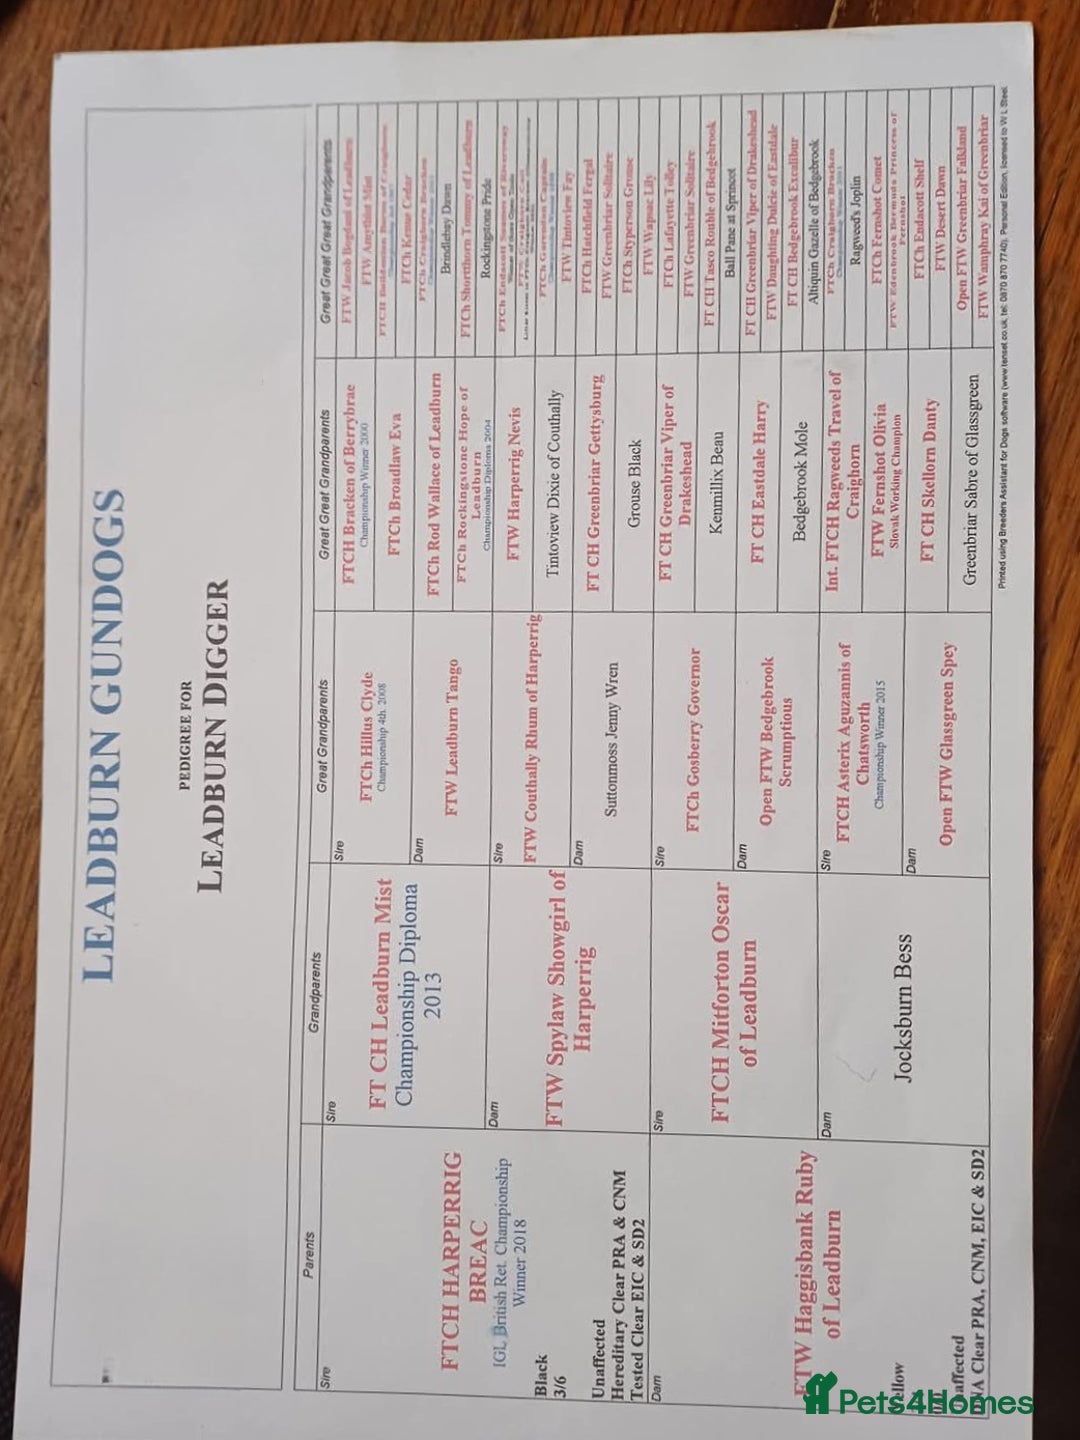 LEADBURN GUNDOGS
PEDIGREE FOR
LEADBURN DIGGER
Parents
Grandparents
Great Grandparents
Great Great Grandparents
Great Great Great Grandparents
Sire
FTCH HARPERRIG
BREAC
IGL British Ret. Championship
Winner 2018
Black
3/6
Unaffected
Hereditary Clear PRA & CNM
Tested Clear EIC & SD2
Dam
FTW Haggisbank Ruby
of Leadburn
DNA Clear PRA, CNM, EIC & SD2
Sire
FT CH Leadburn Mist
Championship Diploma
2013
Dam
FTW Spylaw Showgirl of
Harperrig
Sire
FTCH Mitforton Oscar
of Leadburn
Dam
Jocksburn Bess
Sire
FTCh Hillus Clyde
Championship 4th. 2008
Dam
FTW Leadburn Tango
Sire
FTW Couthally Rhum of Harperrig
Dam
Suttonmoss Jenny Wren
Sire
FTCh Gosberry Governor
Dam
Open FTW Bedgebrook
Scrumptious
Sire
FTCH Asterix Aguzannis of
Chatsworth
Championship Winner 2015
Dam
Open FTW Glassgreen Spey
FTCH Bracken of Berrybrae
Championship Winner 2000
FTCh Broadlaw Eva
FTCh Rod Wallace of Leadburn
FTCh Rockingstone Hope of
Leadburn
Championship Diploma 2004
FTW Harperrig Nevis
Tintoview Dixie of Couthally
FT CH Greenbriar Gettysburg
Grouse Black
FT CH Greenbriar Viper of
Drakeshead
Kenmillix Beau
FT CH Eastdale Harry
Bedgebrook Mole
Int. FTCH Ragweeds Travel of
Craighorn
FTW Fernshot Olivia
Slovak Working Champion
FT CH Skellorn Danty
Greenbriar Sabre of Glassgreen
FTW Jacob Bogdani of Leadburn
FTW Amythist Mist
FTCh Kenne Cedar
FTCh Craighorn Bracken
Brindlebay Dawn
FTCh Shortthorn Tommy of Leadburn
Rockingstone Pride
FTCh Garendon Captain
FTW Tintoview Fay
FTCh Hatchfield Fergal
FTW Greenbriar Solitaire
FTCh Styperson Grouse
FTW Wapsac Lily
FTCh Lafayette Tolley
FTW Greenbriar Solitaire
FT CH Tasco Rouble of Bedgebrook
Ball Pane at Sprincot
FT CH Greenbriar Viper of Drakeshead
FTW Daughting Dulcie of Eastdale
FT CH Bedgebrook Excalibur
Altiquin Gazelle of Bedgebrook
FTCh Craighorn Bracken
Ragweed's Joplin
FTCh Fernshot Comet
FTW Edenbrook Bermuda Princess of
Fernshot
FTCh Endacott Shelf
FTW Desert Dawn
Open FTW Greenbriar Falkland
FTW Wamphray Kai of Greenbriar
Printed using Breeders Assistant for Dogs software (www.tenset.co.uk, tel: 0870 870 7740), Personal Edition, licensed to W L Steel
Pets4Homes